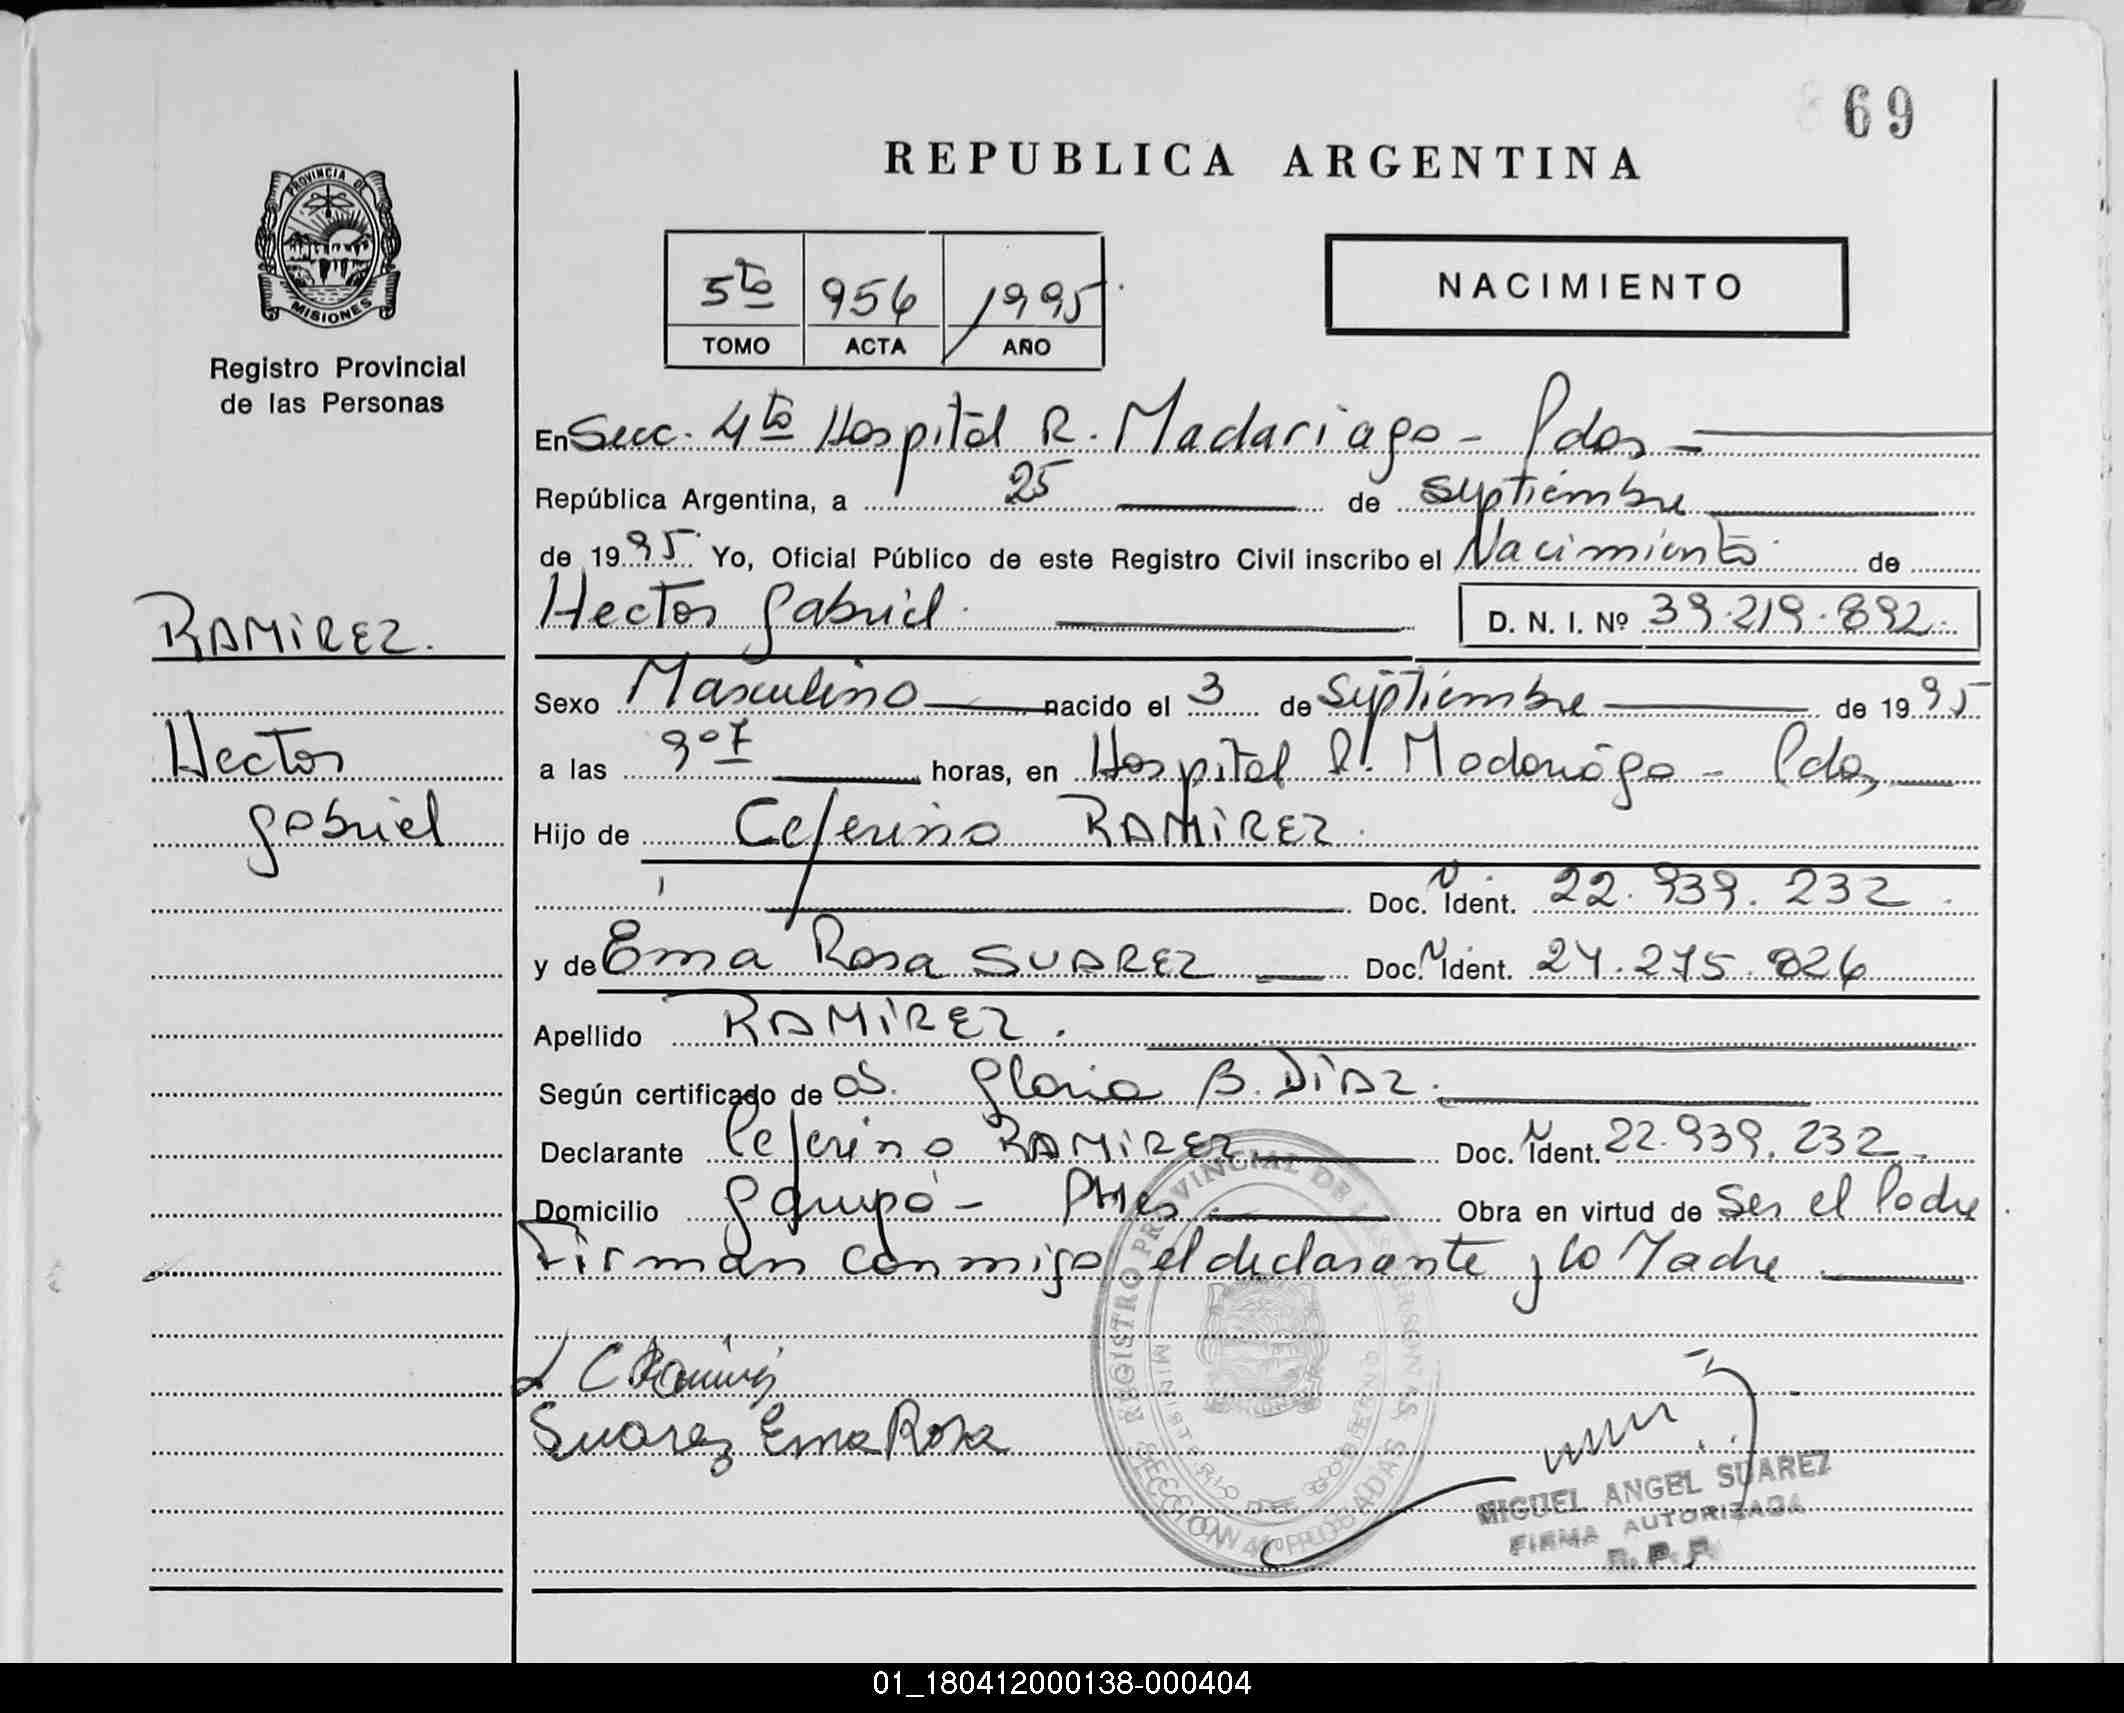 69
REPUBLICA ARGENTINA
PROVINCIA DE
MISIONES
Registro Provincial
de las Personas
5to 956 1995
TOMO ACTA AÑO
NACIMIENTO
En Secc. 4to Hospital R. Madariaga - Pdas -
República Argentina, a 25 de Septiembre
de 1995 Yo, Oficial Público de este Registro Civil inscribo el Nacimiento de
RAMIREZ.
Hector Gabriel
Hector Gabriel. D. N. I. Nº 39.219.892.
Sexo Masculino nacido el 3 de Septiembre de 1995
a las 9 horas, en Hospital R. Madariaga - Pdas
Hijo de Ceferino RAMIREZ.
Doc. N. Ident. 22.939.232.
y de Ema Rosa SUAREZ Doc. N Ident. 24.275.826
Apellido RAMIREZ.
Según certificado de Gloria B. DIAZ.
Declarante Ceferino RAMIREZ Doc. N Ident. 22.939.232.
Domicilio Garupá - Obra en virtud de Ser el Padre
Firman conmigo el declarante y la Madre
C Ramirez
Suarez Ema Rosa
REGISTRO PROVINCIAL DE LAS PERSONAS
MINISTERIO DE GOBIERNO
SECCION 4to POSADAS
MIGUEL ANGEL SUAREZ
FIRMA AUTORIZADA
R. P. P.
01_180412000138-000404